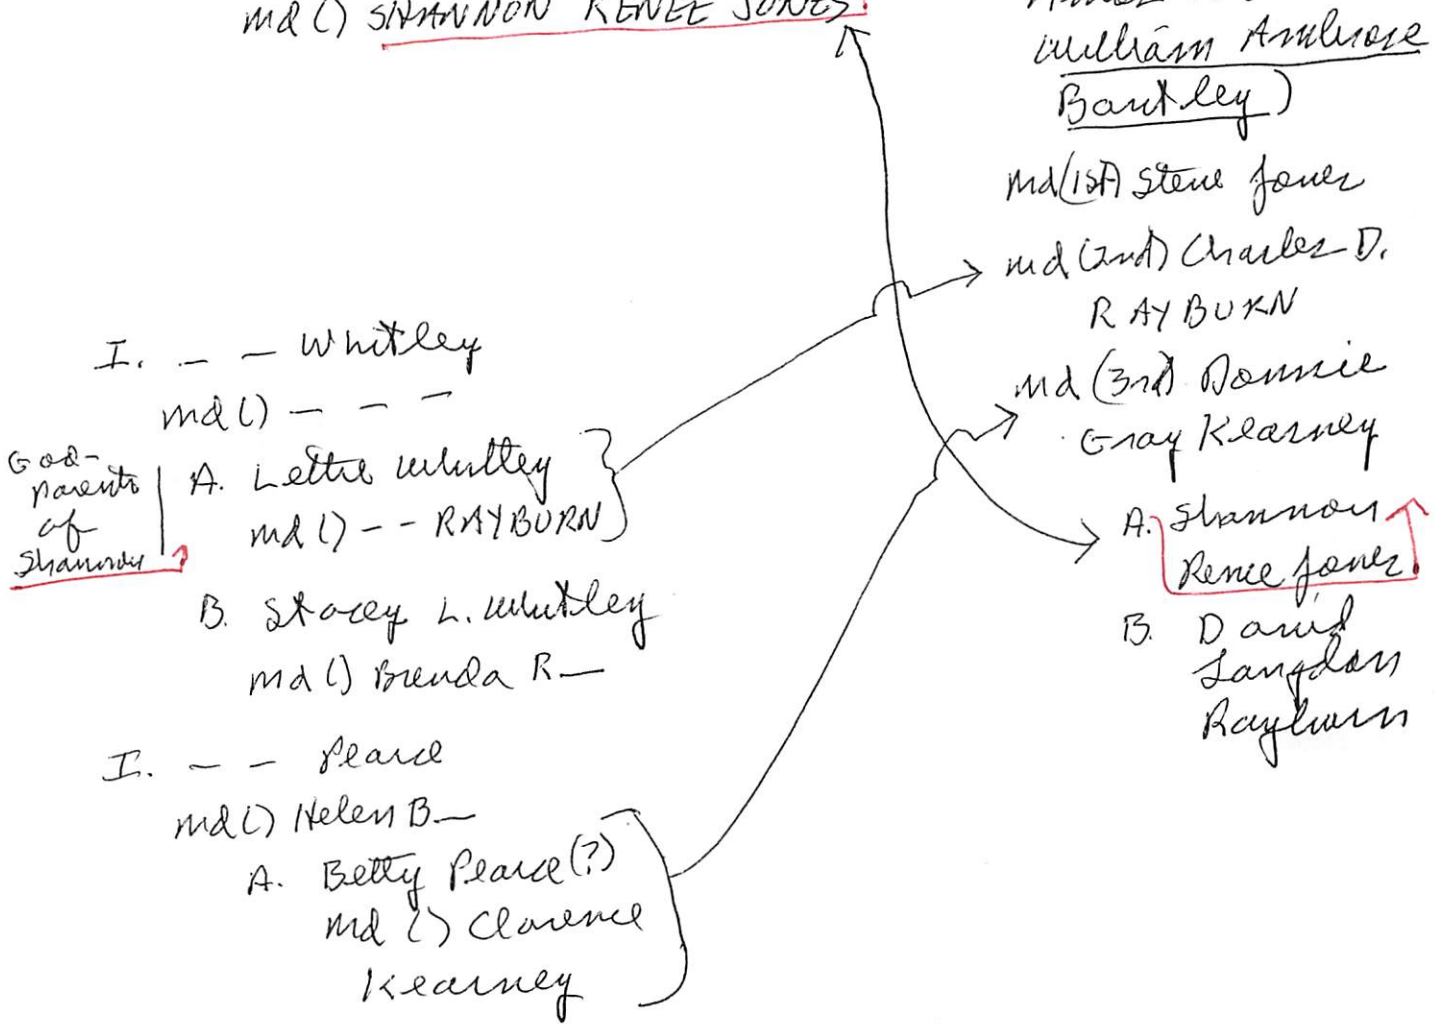 md () SHANNON RENEE JONES.
William Ambrose
Bartley)
md (1st) Steve Jones
md (2nd) Charles D.
RAYBURN
md (3rd) Donnie
Gray Kearney
A. Shannon
Renee Jones.
B. David
Langdon
Rayburn
I. - - Whitley
md () - - -
God-
parents
of
Shannon
A. Lettie Whitley
md () - - RAYBURN
B. Stacey L. Whitley
md () Brenda R. -
I. - - Pearce
md () Helen B. -
A. Betty Pearce (?)
md () Clarence
Kearney